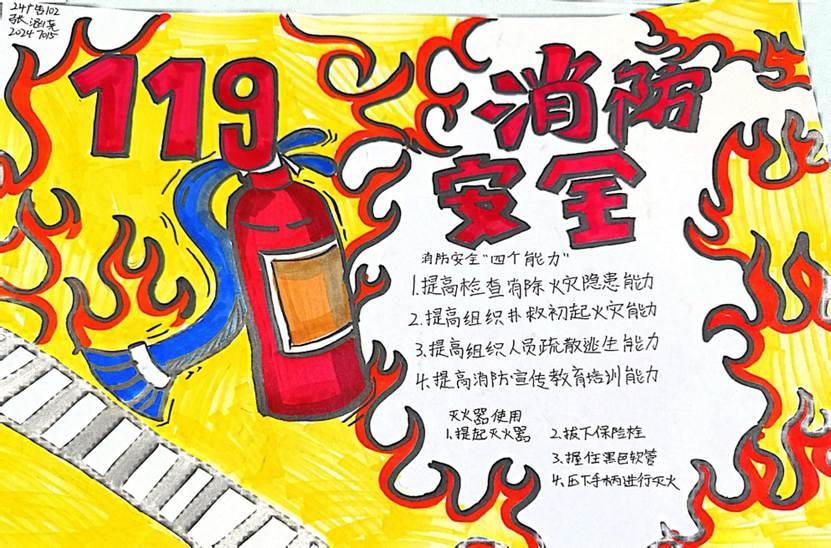 24广告102
张
2024 7015
119
消防
安全
消防安全"四个能力"
1.提高检查消除火灾隐患能力
2.提高组织扑救初起火灾能力
3.提高组织人员疏散逃生能力
4.提高消防宣传教育培训能力
灭火器使用
1.提起灭火器 2.拔下保险栓
3.握住黑色软管
4.压下手柄进行灭火